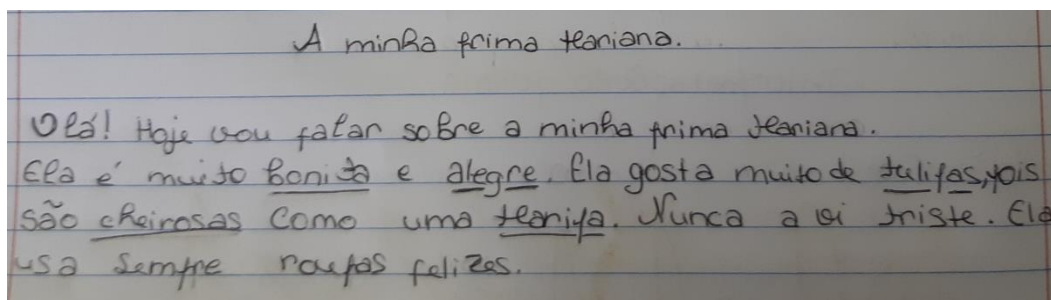 A minha prima teaniana.
Olá! Hoje vou falar sobre a minha prima teaniana.
Ela é muito bonita e alegre. Ela gosta muito de tulipas, pois
são cheirosas como uma
Nunca a vi triste. Ela
usa sempre roupas felizes.